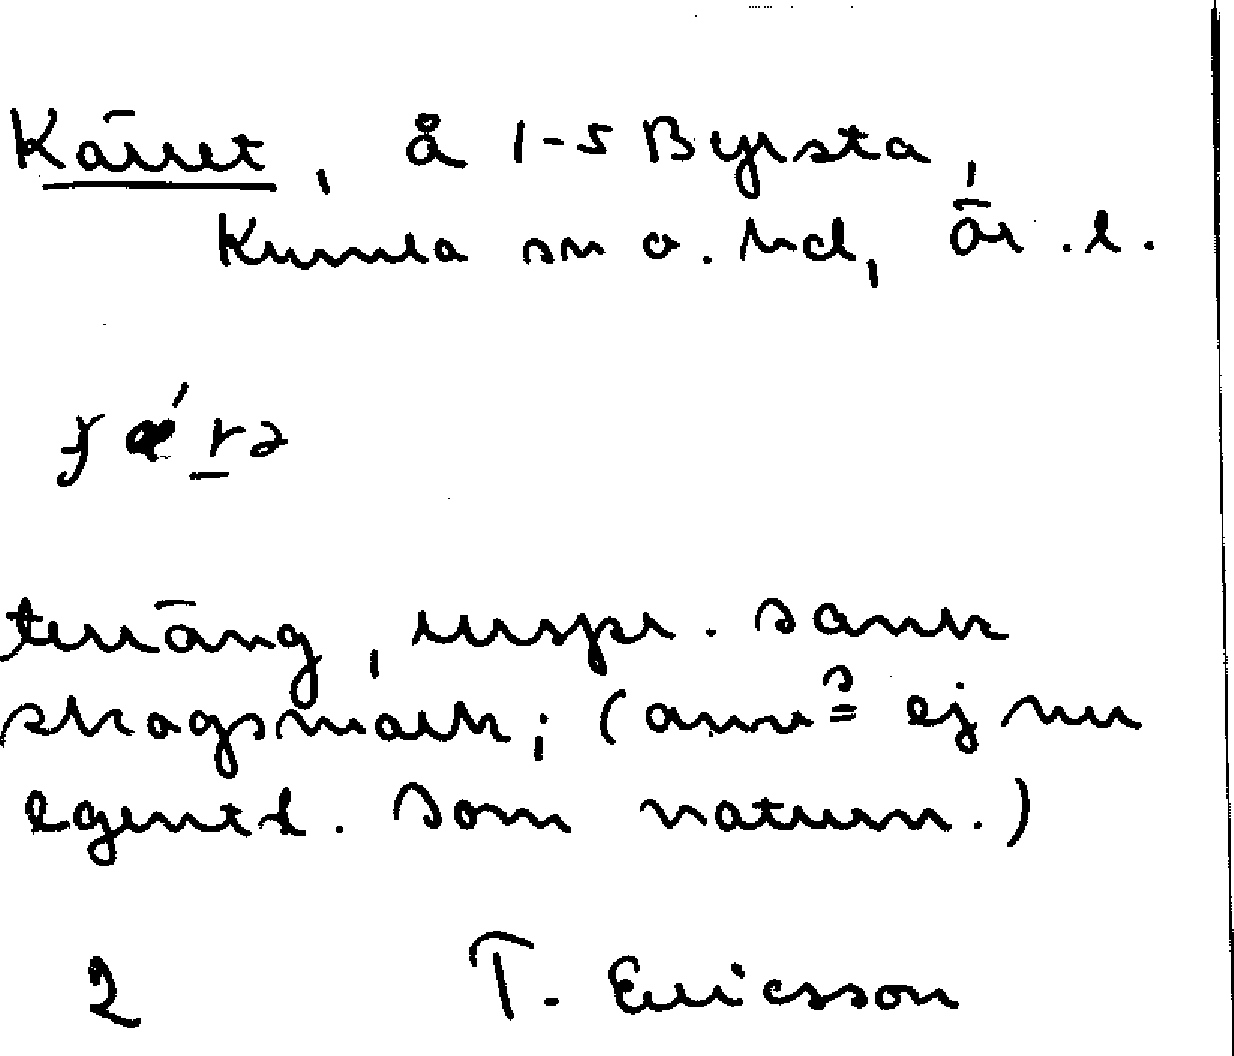 Kärret, å 1-5 Byrsta,
Kumla sn o. hd, Ör. l.
terräng, urspr. sank
skogsmark; (anv? ej nu
egentl. som naturn.)
2 T. Ericsson